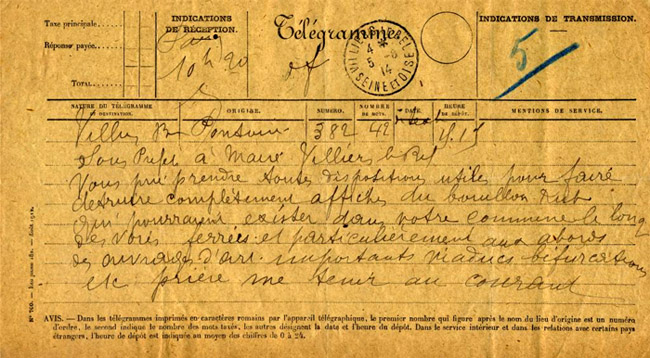 Taxe principale
Réponse payée
TOTAL
INDICATIONS DE RÉCEPTION.
Paris
10 h 20
Télégramme.
VILLIERS-LE-BEL
4 * 5 -8 14
SEINE ET OISE
INDICATIONS DE TRANSMISSION.
5
NATURE DU TÉLÉGRAMME ET DESTINATION.
ORIGINE.
NUMÉRO.
NOMBRE DE MOTS.
DATE.
HEURE DE DÉPÔT.
MENTIONS DE SERVICE.
Villiers Pontoise 382 42
Sous Préfet à Maire Villiers le Bel
Vous prie prendre toutes dispositions utiles pour faire
détruire complètement affiches du bouillon Kub
qui pourraient exister dans votre commune le long
des voies ferrées et particulièrement aux abords
des ouvrages d'art importants viaducs bifurcations
etc prière me tenir au courant
AVIS. — Dans les télégrammes imprimés en caractères romains par l'appareil télégraphique, le premier nombre qui figure après le nom du lieu d'origine est un numéro
d'ordre, le second indique le nombre des mots taxés, les autres désignent la date et l'heure du dépôt. Dans le service intérieur et dans les relations avec certains pays
étrangers, l'heure de dépôt est indiquée au moyen des chiffres de 0 à 24.